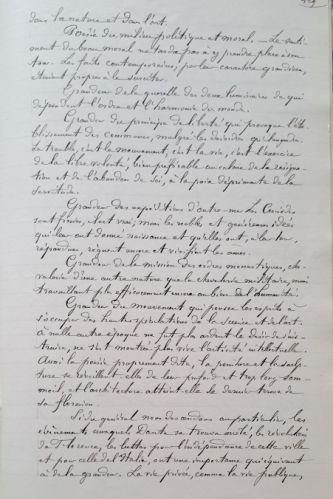 dans la nature et dans l'art.
Poésie du milieu politique et moral. — Le senti-
ment du beau moral ne tarda pas à y prendre place à son
tour. Les faits contemporains, par leur caractère grandiose,
étaient propres à le susciter.
Grandeur de la querelle des deux luminaires de qui
dépendent l'ordre et l'harmonie du monde.
Grandeur du principe de liberté qui provoque l'éta-
blissement des communes, malgré les
Le trouble, c'est le mouvement, c'est la vie, c'est l'exercice
de la libre volonté, bien préférable au calme de la résigna-
tion et de l'abandon de soi, à la paix déprimante de la
servitude.
Grandeur des expéditions d'outre-mer. Les Croisades
sont finies, c'est vrai; mais les nobles et généreuses idées
qui leur ont donné naissance et qu'elles ont, à leur tour
répandues, règnent encore et vivifient les âmes.
Grandeur de la mission des ordres monastiques, che-
valerie d'une autre nature que la chevalerie militaire, mais
travaillant plus efficacement encore au bien de l'humanité.
Grandeur du mouvement qui pousse les esprits à
s'occuper des hautes spéculations de la science et de l'art.
À nulle autre époque ne fut plus ardent le désir de s'ins-
truire, ne s'est montrée plus vive l'activité intellectuelle.
Aussi la poésie proprement dite, la peinture et la sculp-
ture se réveillent-elles de leur profond et trop long som-
meil, et l'architecture atteint-elle le dernier terme de
sa floraison.
Si du général nous descendons au particulier, les
événements auxquels Dante se trouva mêlé, les révolutions
de Florence, les luttes pour l'indépendance de cette ville
et pour celle de l'Italie, ont une importance qui équivaut
à de la grandeur. La vie privée, comme la vie publique,